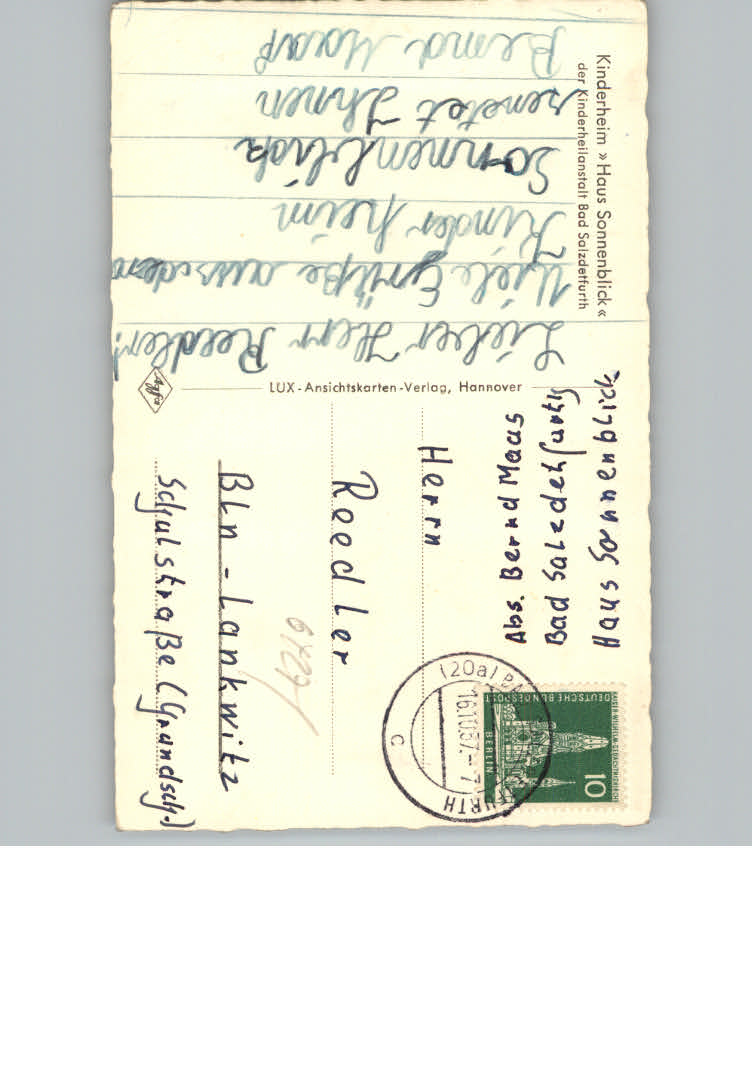 Kinderheim »Haus Sonnenblick«
der Kinderheilanstalt Bad Salzdetfurth
Lieber Herr Reedler!
Viele Grüße aus dem
Kinderheim
Sonnenblick
sendet Ihnen
Bernd Maaß
LUX-Ansichtskarten-Verlag, Hannover
Agfa
Abs. Bernd Maas
Bad Salzdehfurth
Haus Sonnenblick
Herrn
Reedler
Bln-Lankwitz
Schulstraße (Grundsch.)
(20a) BA
16.10.57.-7
FURTH
c
KAISER-WILHELM-GEDÄCHTNISKIRCHE
DEUTSCHE BUNDESPOST
BERLIN
10